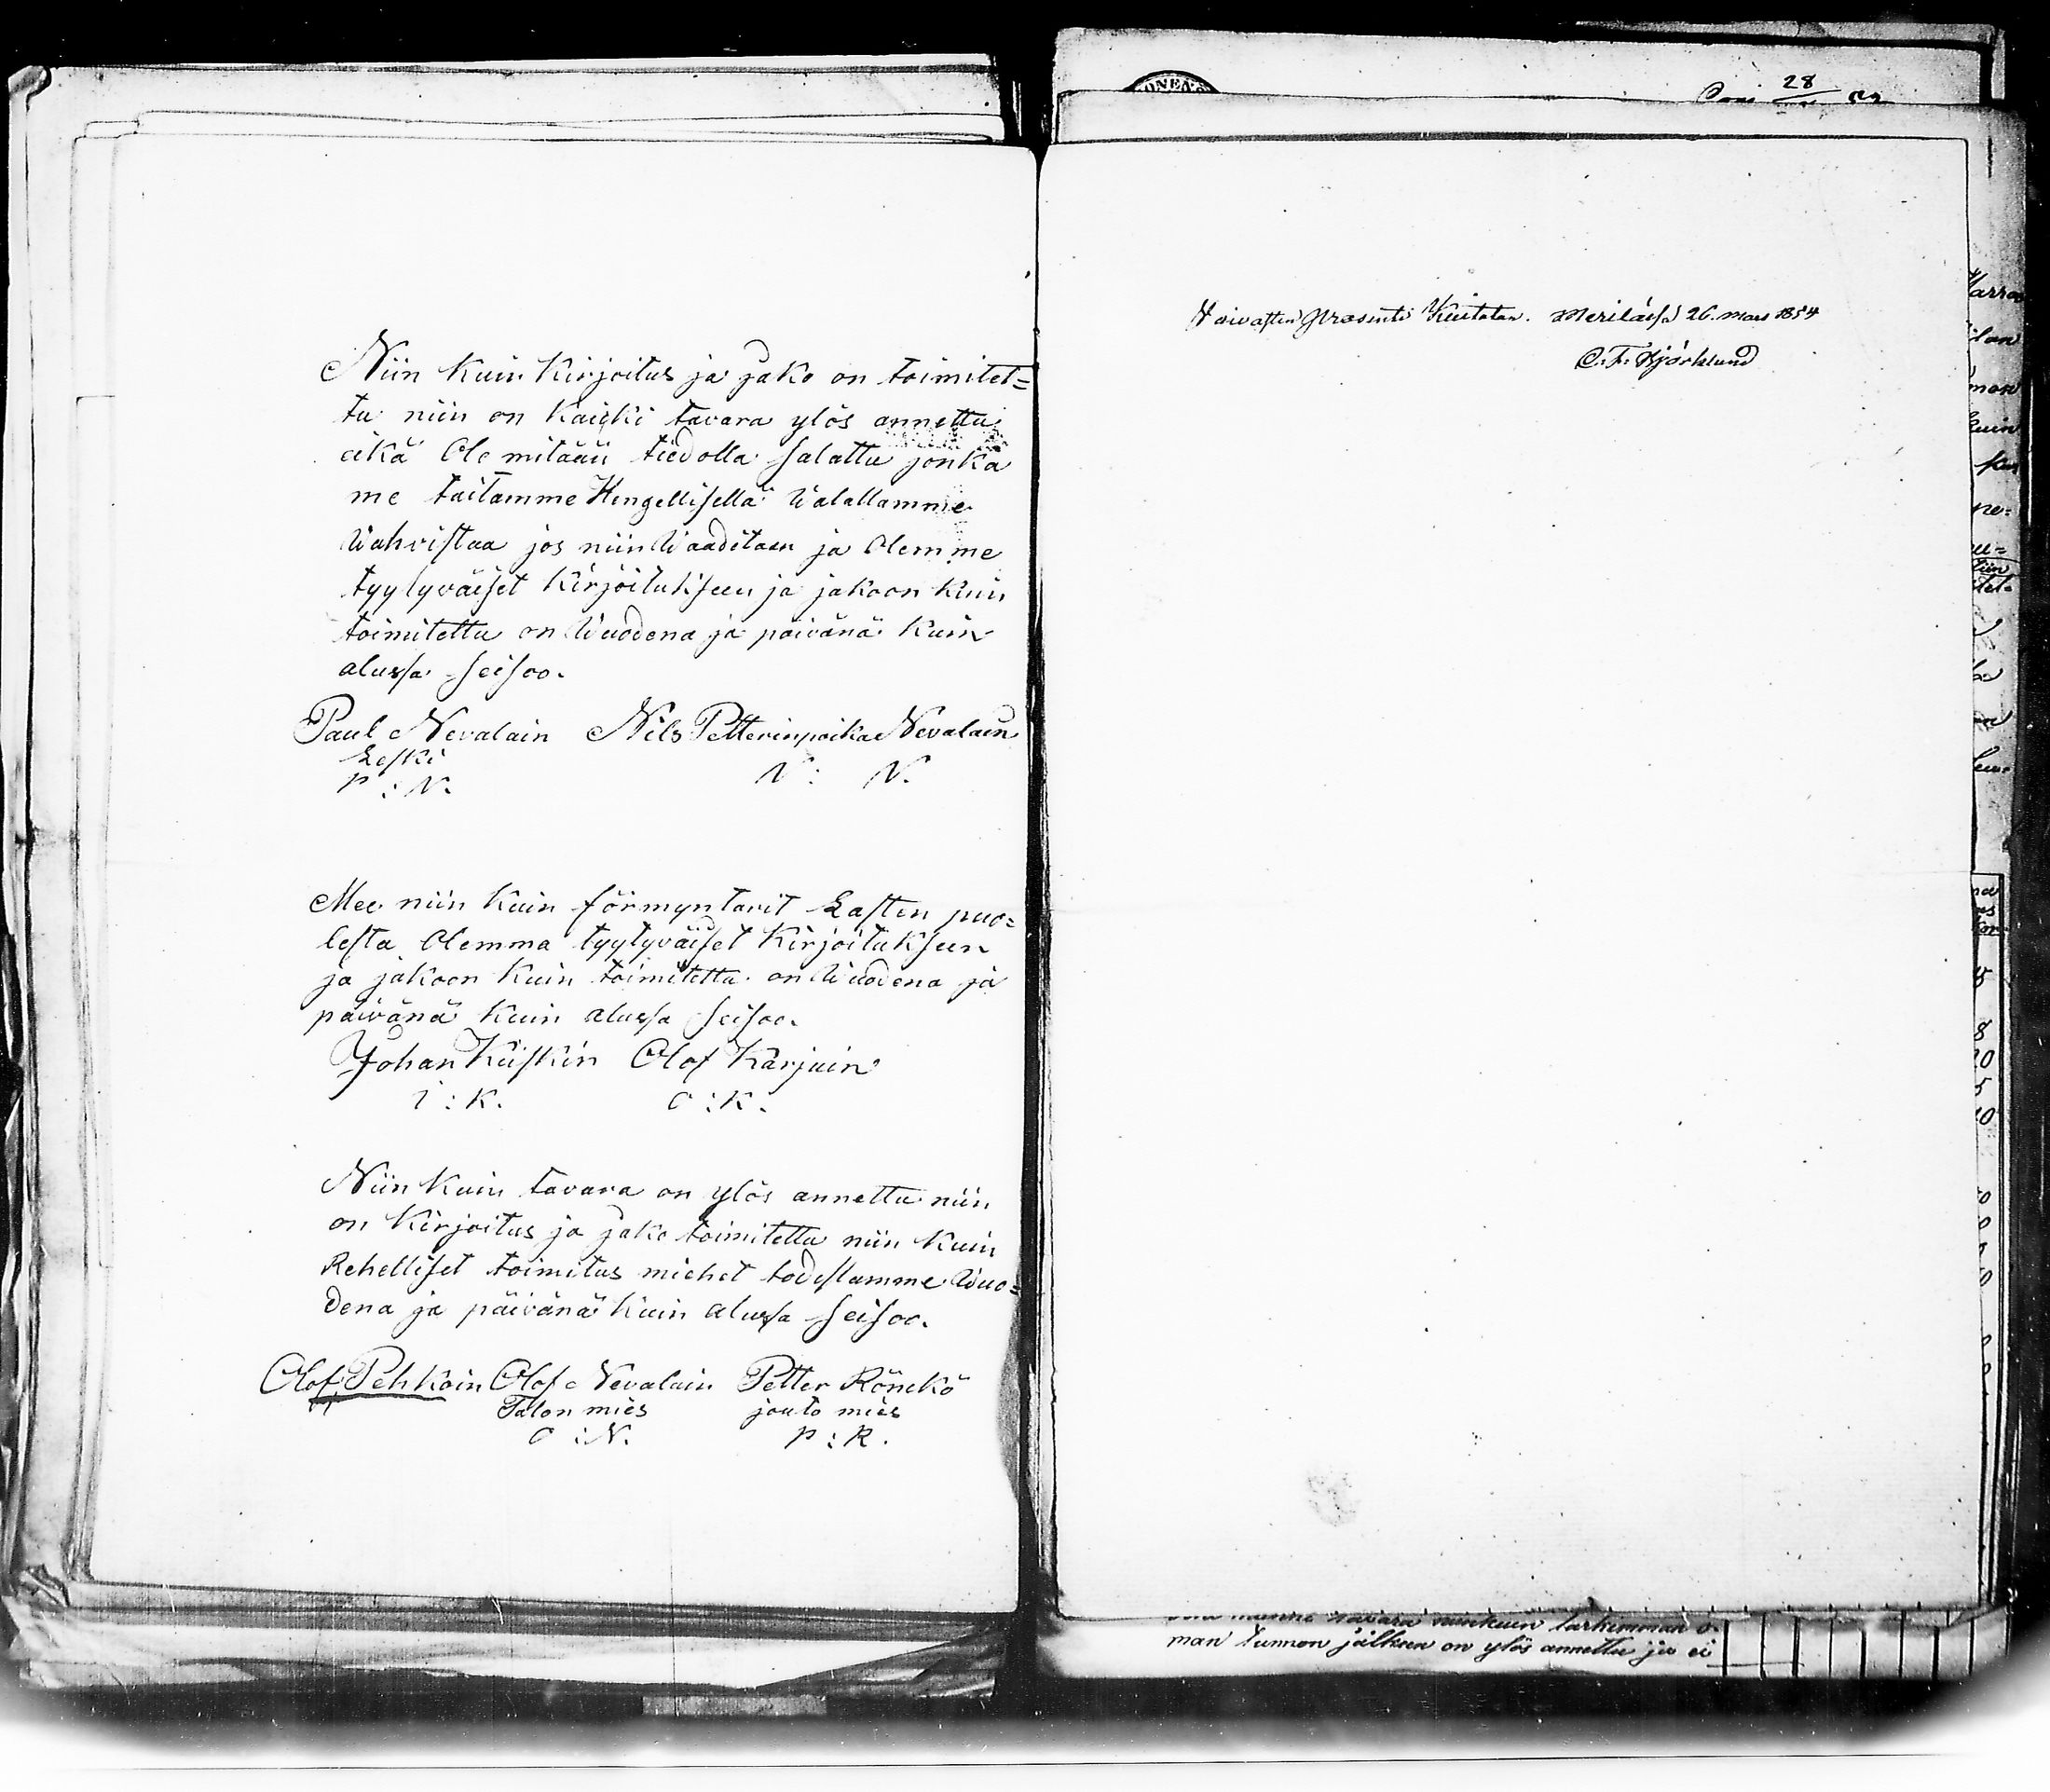 Niin kuin kirjoitus ja jako on toimitet=
tu niin on kaicki tavara ylös annettu
eikä Ole mitään tiedolla salattu jonka
me taitamme Hengellisellä Walallamme
Wahvistaa jos niin Waaditaan ja Olemme
tyytyväiset kirjoitukseen ja jakoon kuin
toimitettu on Wuodena ja päivänä kuin
alussa seisoo.
Paul Nevalain Nils Petterinpoika Nevalain
Leski
P : N. N : N.
Mee niin kuin förmyntarit Lasten puo=
lesta Olemma tyytyväiset kirjoitukseen
ja jakoon kuin toimitettu on Wuodena ja
päivänä kuin alussa seisoo.
Johan Kiiskin Olof Karjain
I : K. O : K.
Niin kuin tavara on ylös annettu niin
on kirjoitus ja jako toimitettu niin kuin
Rehelliset toimitus miehet todistamme Wuo=
dena ja päivänä kuin alussa seisoo.
Olof Pehkoin Olof Nevalain Petter Rönckö
Talon mies jouto mies
O : N. P : R.
28
Vaivasten Prosentti Kuitatan. Merilässä 26. mars 1854
C. F. Björklund
tavara niinkuin tarkimman o-
man tunnon jälkeen on ylös annettu ja ei